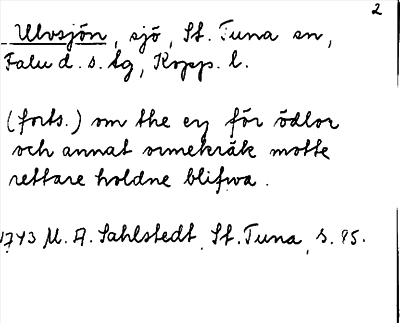 2
Ulvsjön, sjö, St. Tuna sn,
Falu d. s. tg, Kopp. l.
(forts.) om the ey för ödlor
och annat ormekräk motte
rettare holdne blifwa.
1743 M. A. Sahlstedt, St. Tuna, s. 95.